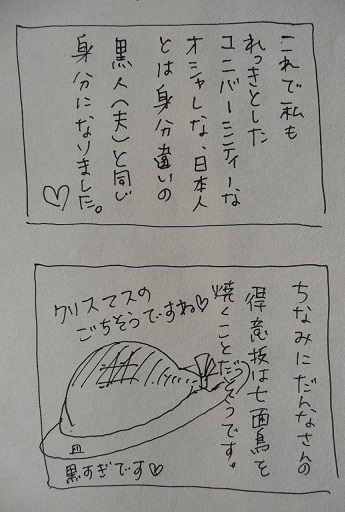 これで私も
れっきとした
ユニバーシティーな
オシャレな、日本人
とは身分違いの
黒人(夫)と同じ
身分になりました。♡
ちなみにだんなさんの
得意技は七面鳥を
焼くことだそうです。
クリスマスの
ごちそうですね♡
黒すぎです♡